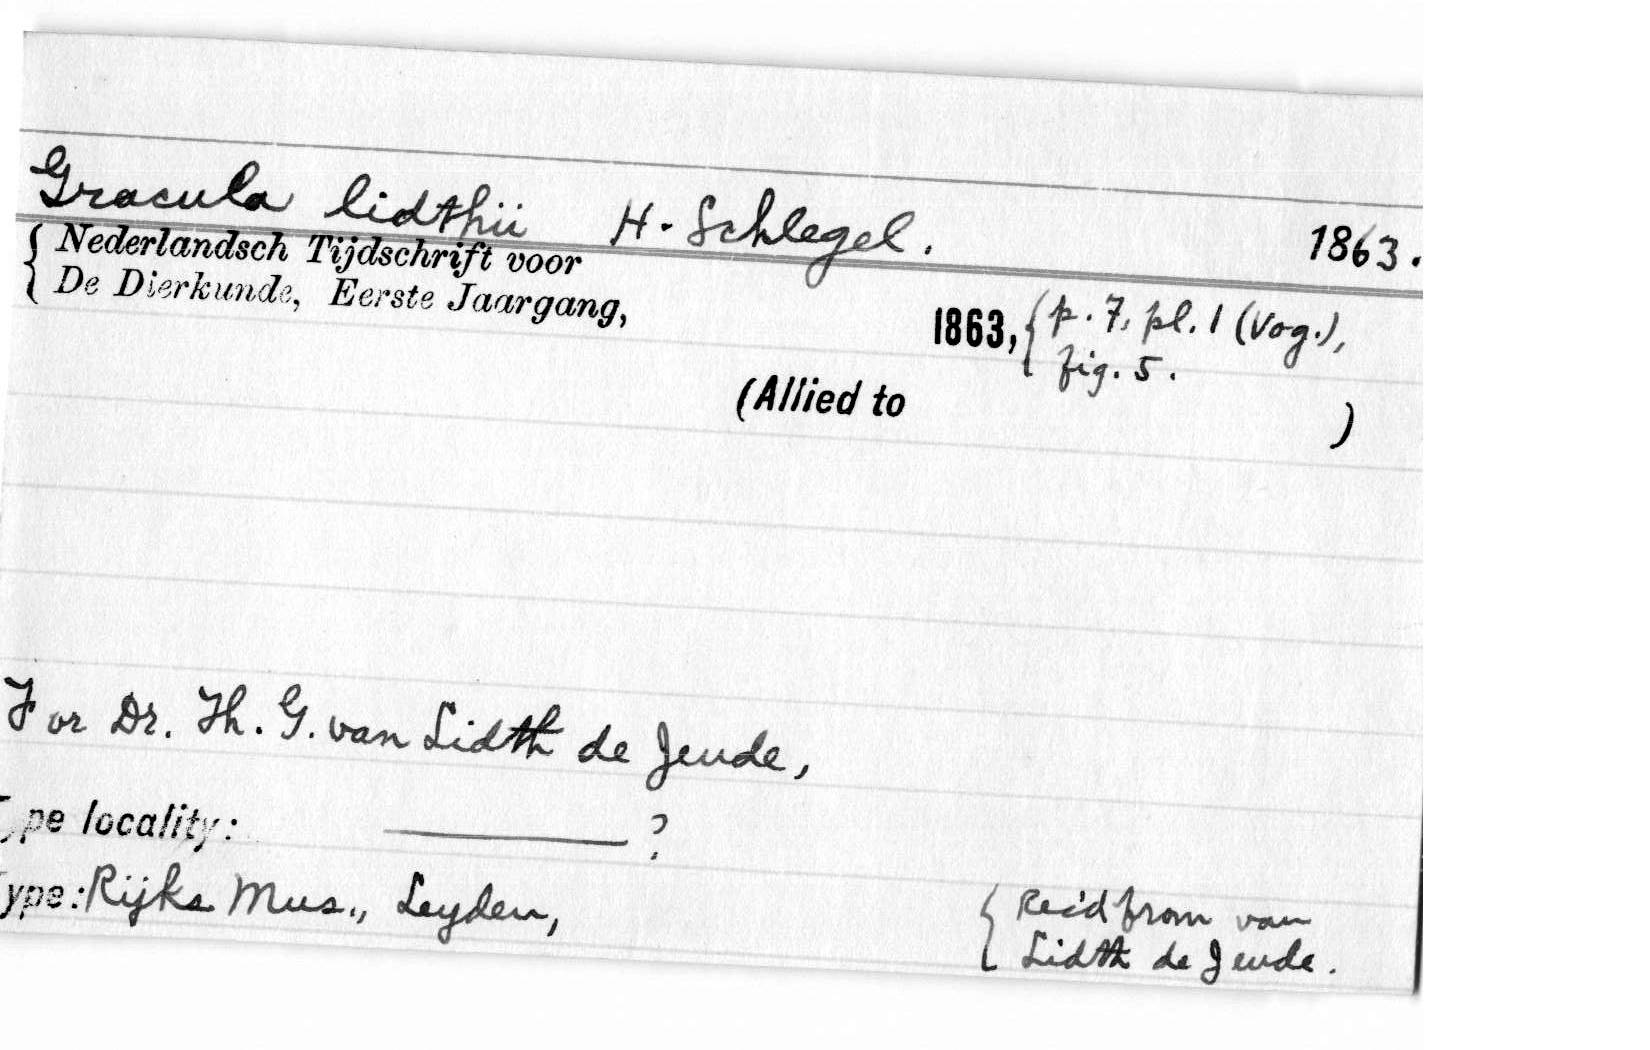 Gracula lidthii H. Schlegel. 1863.
{ Nederlandsch Tijdschrift voor
De Dierkunde, Eerste Jaargang,
1863, { p. 7, pl. 1 (Vog.),
fig. 5.
(Allied to )
For Dr. Th. G. van Lidth de Jeude,
ype locality: ———— ?
ype: Rijks Mus., Leyden, { Rec'd from van
Lidth de Jeude.